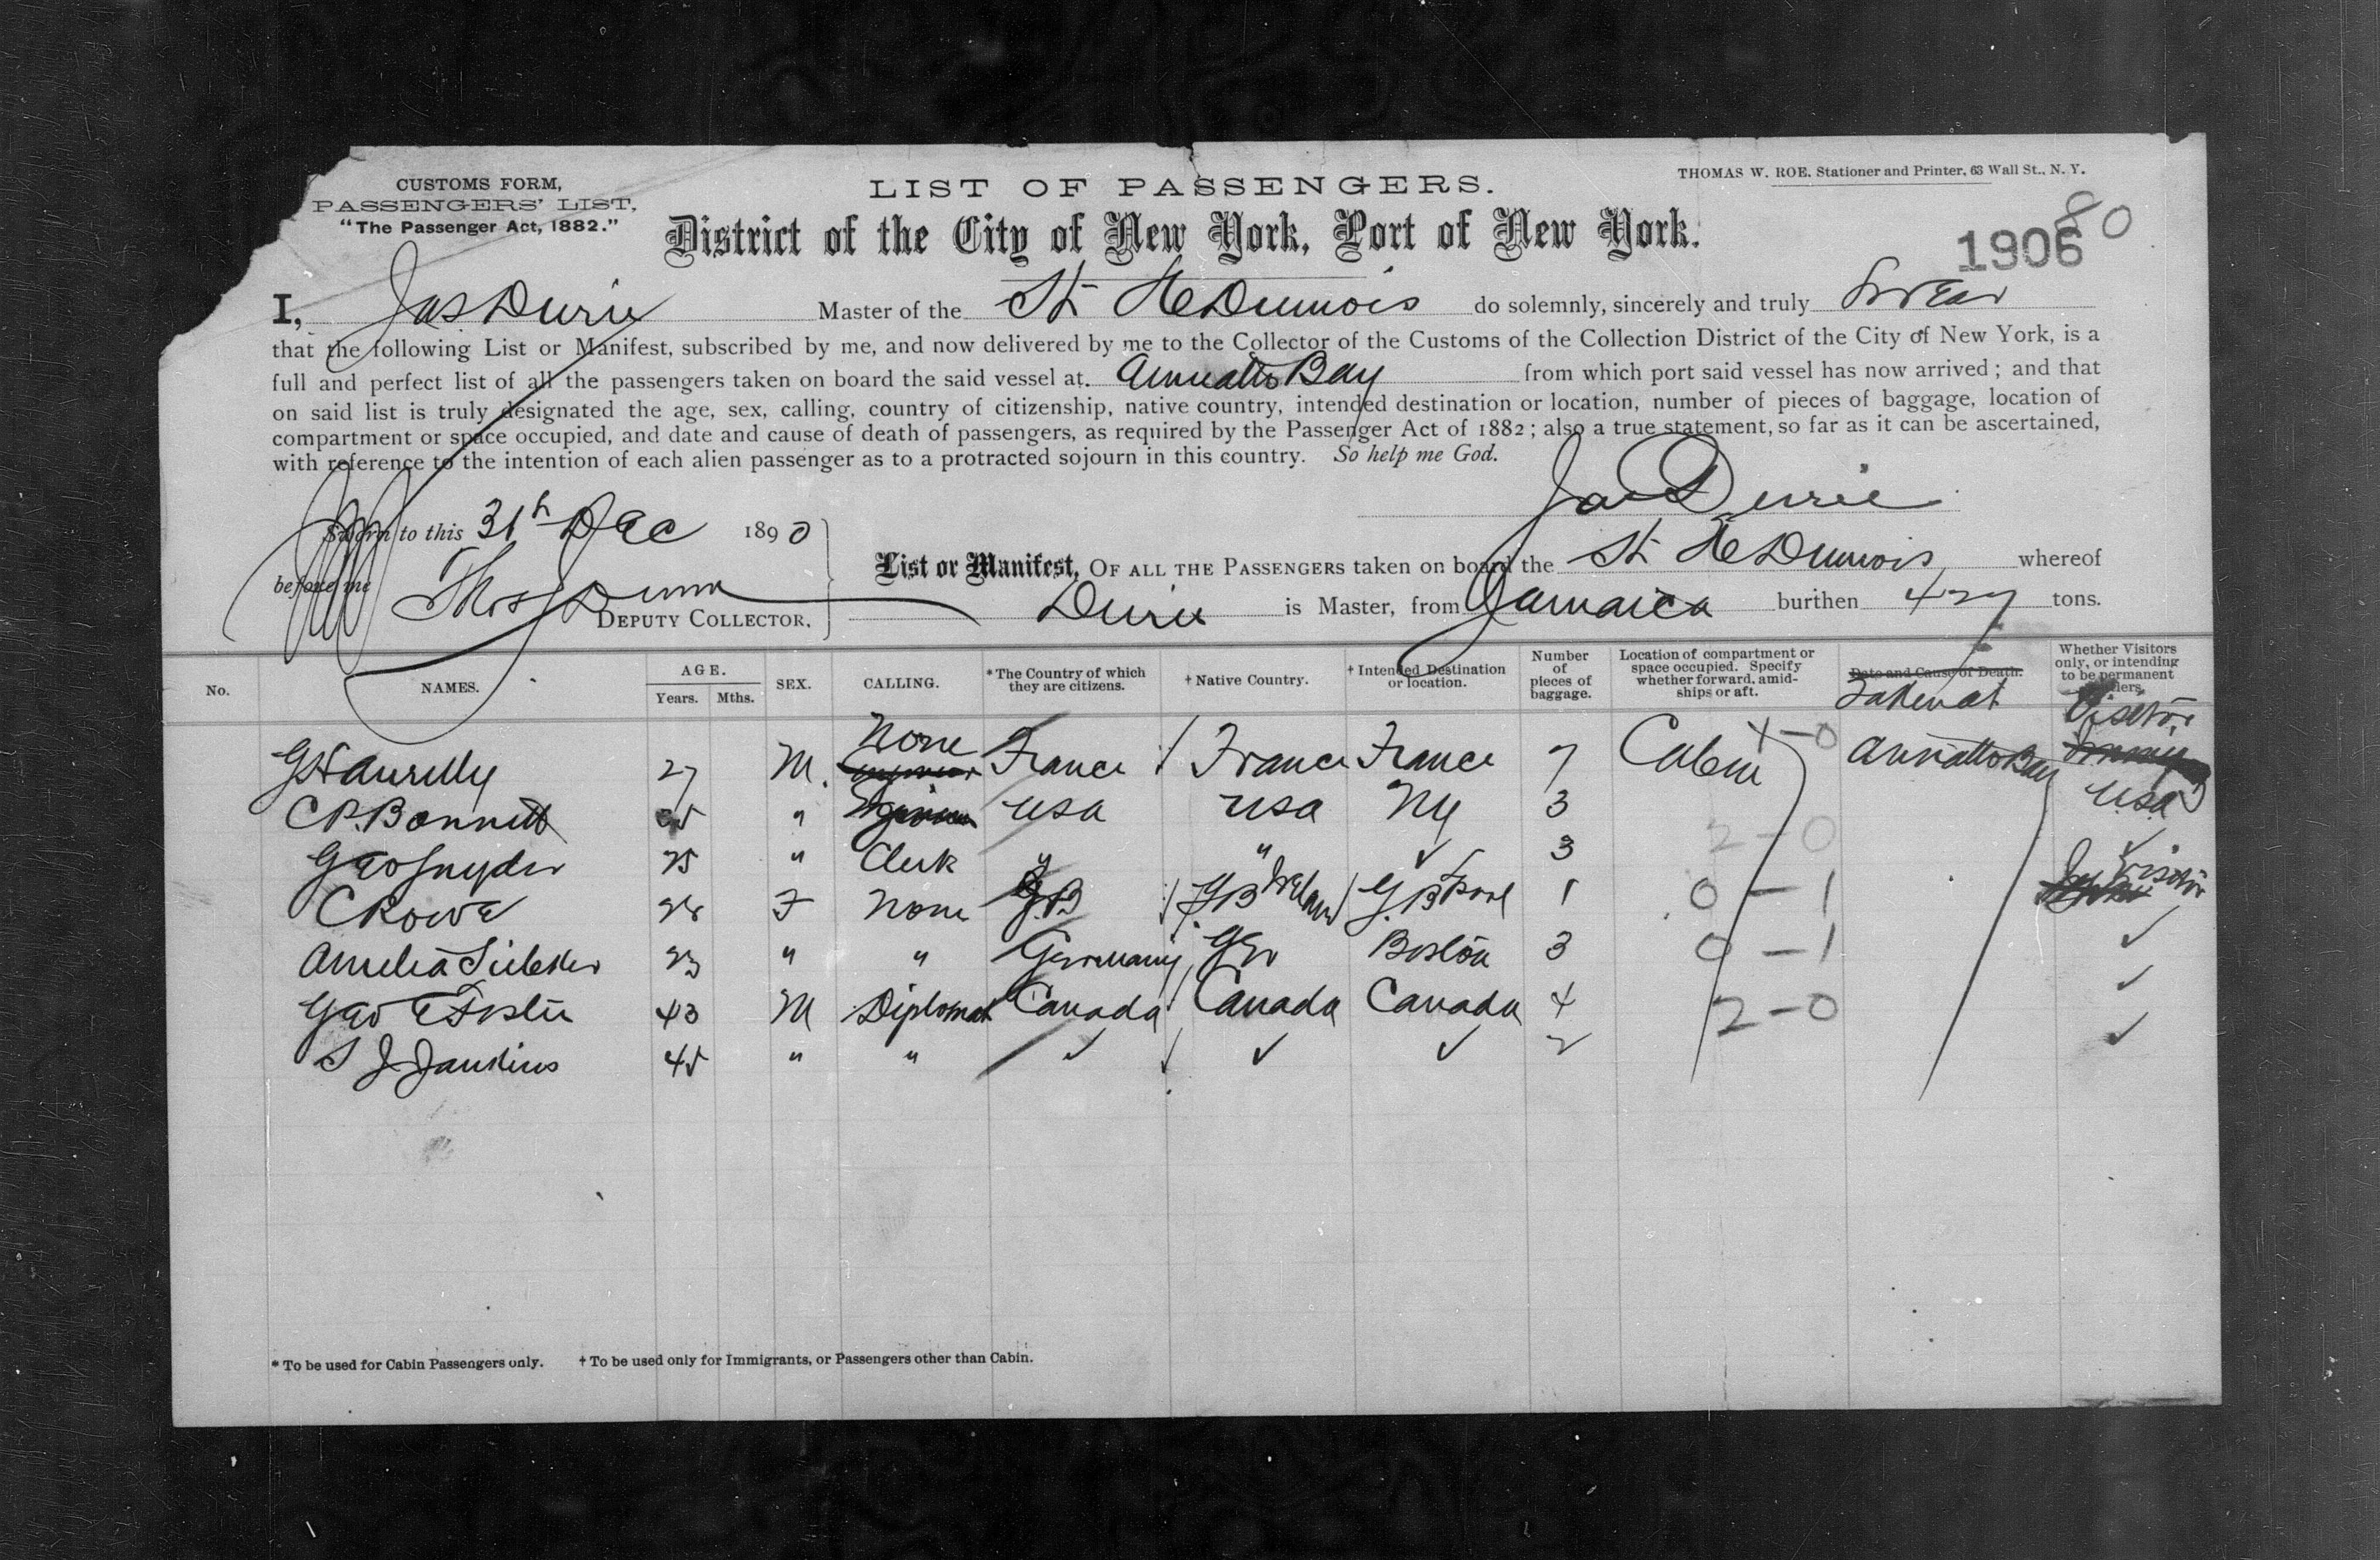 CUSTOMS FORM,
PASSENGERS' LIST,
"The Passenger Act, 1882."
LIST OF PASSENGERS.
THOMAS W. ROE, Stationer and Printer, 63 Wall St., N. Y.
District of the City of New York, Port of New York.
80
1906
I, Jas Durie Master of the St HeDunois do solemnly, sincerely and truly Swear
that the following List or Manifest, subscribed by me, and now delivered by me to the Collector of the Customs of the Collection District of the City of New York, is a
full and perfect list of all the passengers taken on board the said vessel at Annatto Bay from which port said vessel has now arrived; and that
on said list is truly designated the age, sex, calling, country of citizenship, native country, intended destination or location, number of pieces of baggage, location of
compartment or space occupied, and date and cause of death of passengers, as required by the Passenger Act of 1882; also a true statement, so far as it can be ascertained,
with reference to the intention of each alien passenger as to a protracted sojourn in this country. So help me God.
Jas Durie
Sworn to this 31st Dec 1890
before me Thos Dunn
DEPUTY COLLECTOR.
List or Manifest, OF ALL THE PASSENGERS taken on board the St HeDunois whereof
Durie is Master, from Jamaica burthen 427 tons.
No.
NAMES.
AGE.
Years. Mths.
SEX.
CALLING.
*The Country of which they are citizens.
†Native Country.
†Intended Destination or location.
Number of pieces of baggage.
Location of compartment or space occupied. Specify whether forward, amidships or aft.
Date and Cause of Death.
Taken at
Whether Visitors only, or intending to be permanent
27 M. None France France France 7 Cabin 4-0 Annatto Bay Visitor
C P. Bonnett " USA USA NY 3 USA
Geo Snyder 25 " Clerk " " ✓ 3 2-0 ✓
C Rowe 28 F None G.B GB Ireland G.B 1 0-1 Visitor
Amelia 23 " " Germany Ger Boston 3 0-1 ✓
Geo E Foster 43 M Diplomat Canada Canada Canada 4 2-0 ✓
S J Jankins 45 " " ✓ ✓ ✓ 2 ✓
* To be used for Cabin Passengers only. † To be used only for Immigrants, or Passengers other than Cabin.